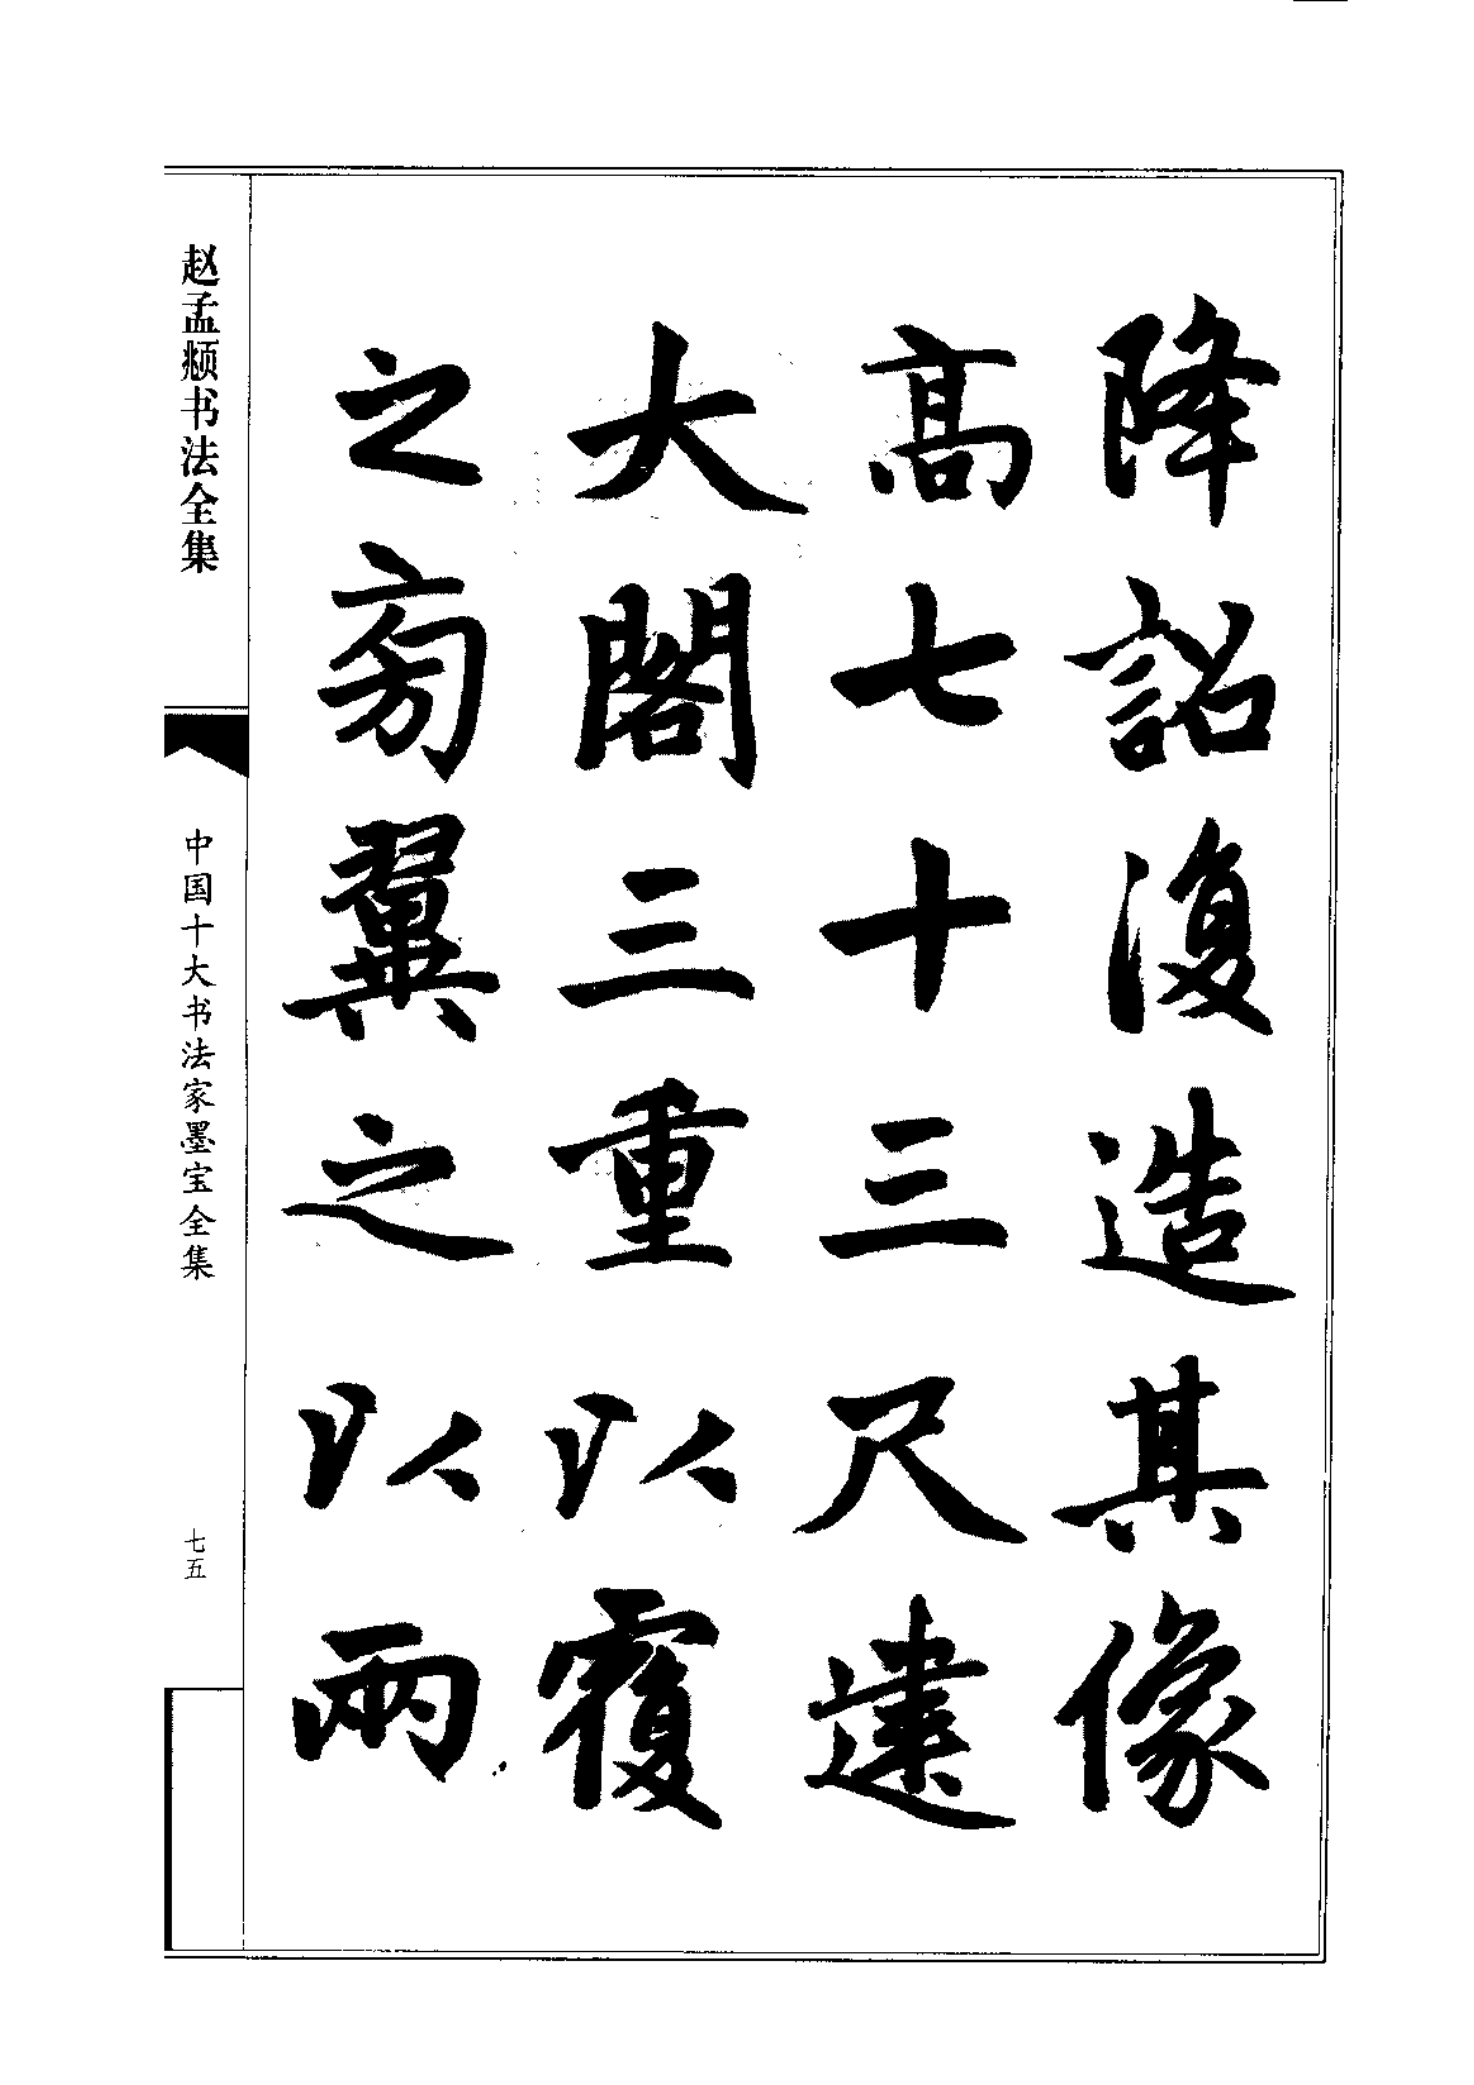 降詔復造其像
高七十三尺建
大閣三重以覆
之旁翼之以兩
赵孟頫书法全集
中国十大书法家墨宝全集
七五